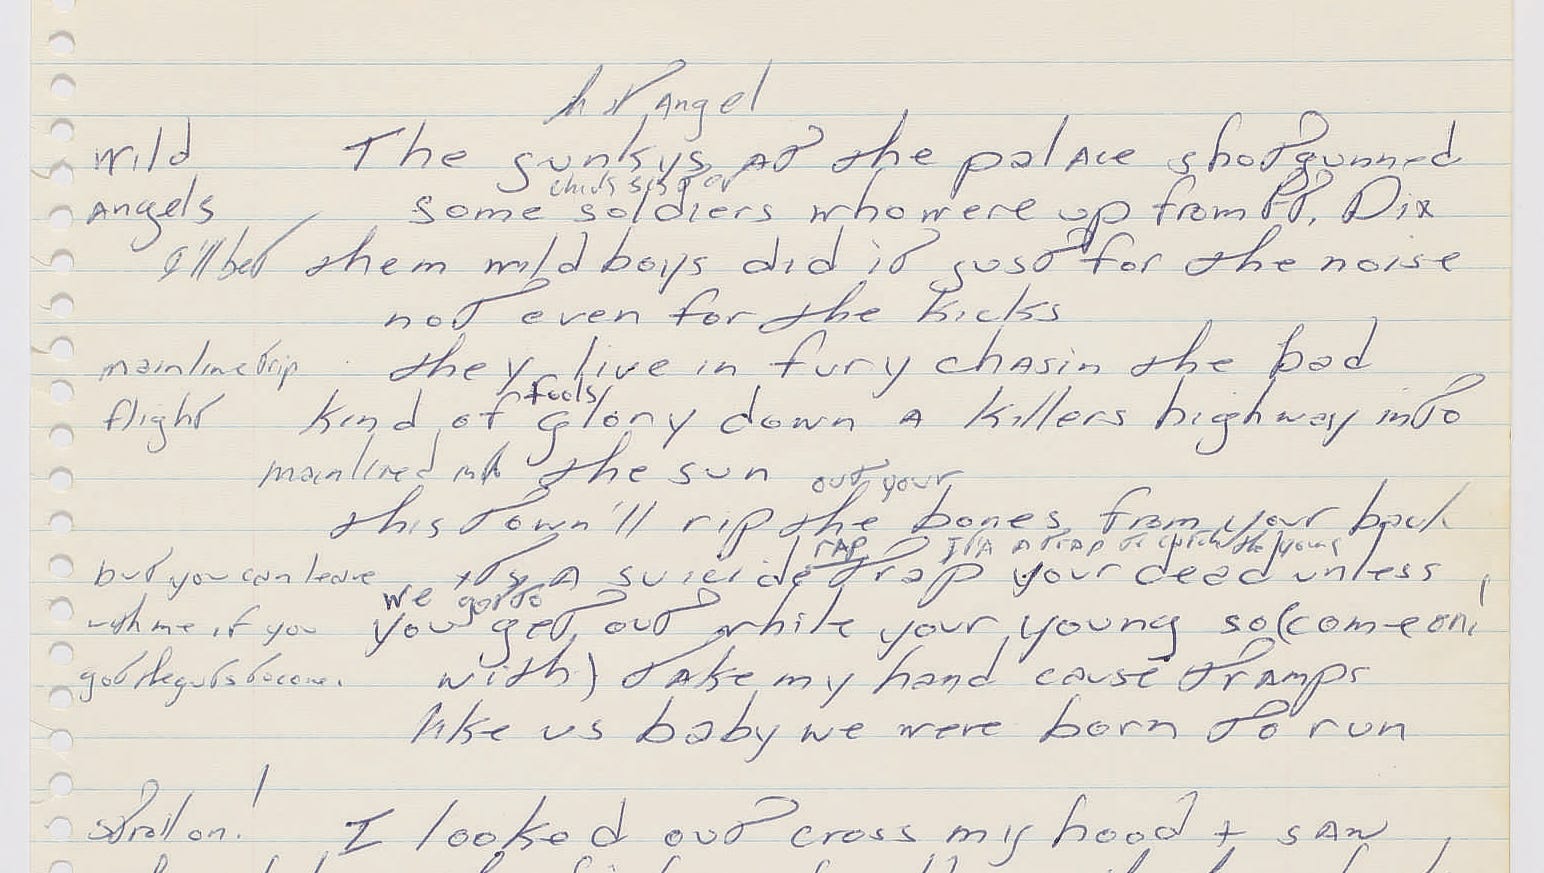 Angel
Wild The gunkys at the palace shotgunned
chicks sist or
Angels some soldiers who were up from Ft. Dix
I'll bet them wild boys did it just for the noise
not even for the kicks
mainline trip they live in fury chasin the bad
fools
flight kind of glory down a killers highway into
mainlined into the sun
out your
this town'll rip the bones from your back
rap its a trap to catch the young
but you can leave its a suicide trap your dead unless
we got to
with me if you you get out while your young so (come on
got the guts to come. with) take my hand cause tramps
like us baby we were born to run
stroll on! I looked out cross my hood + saw